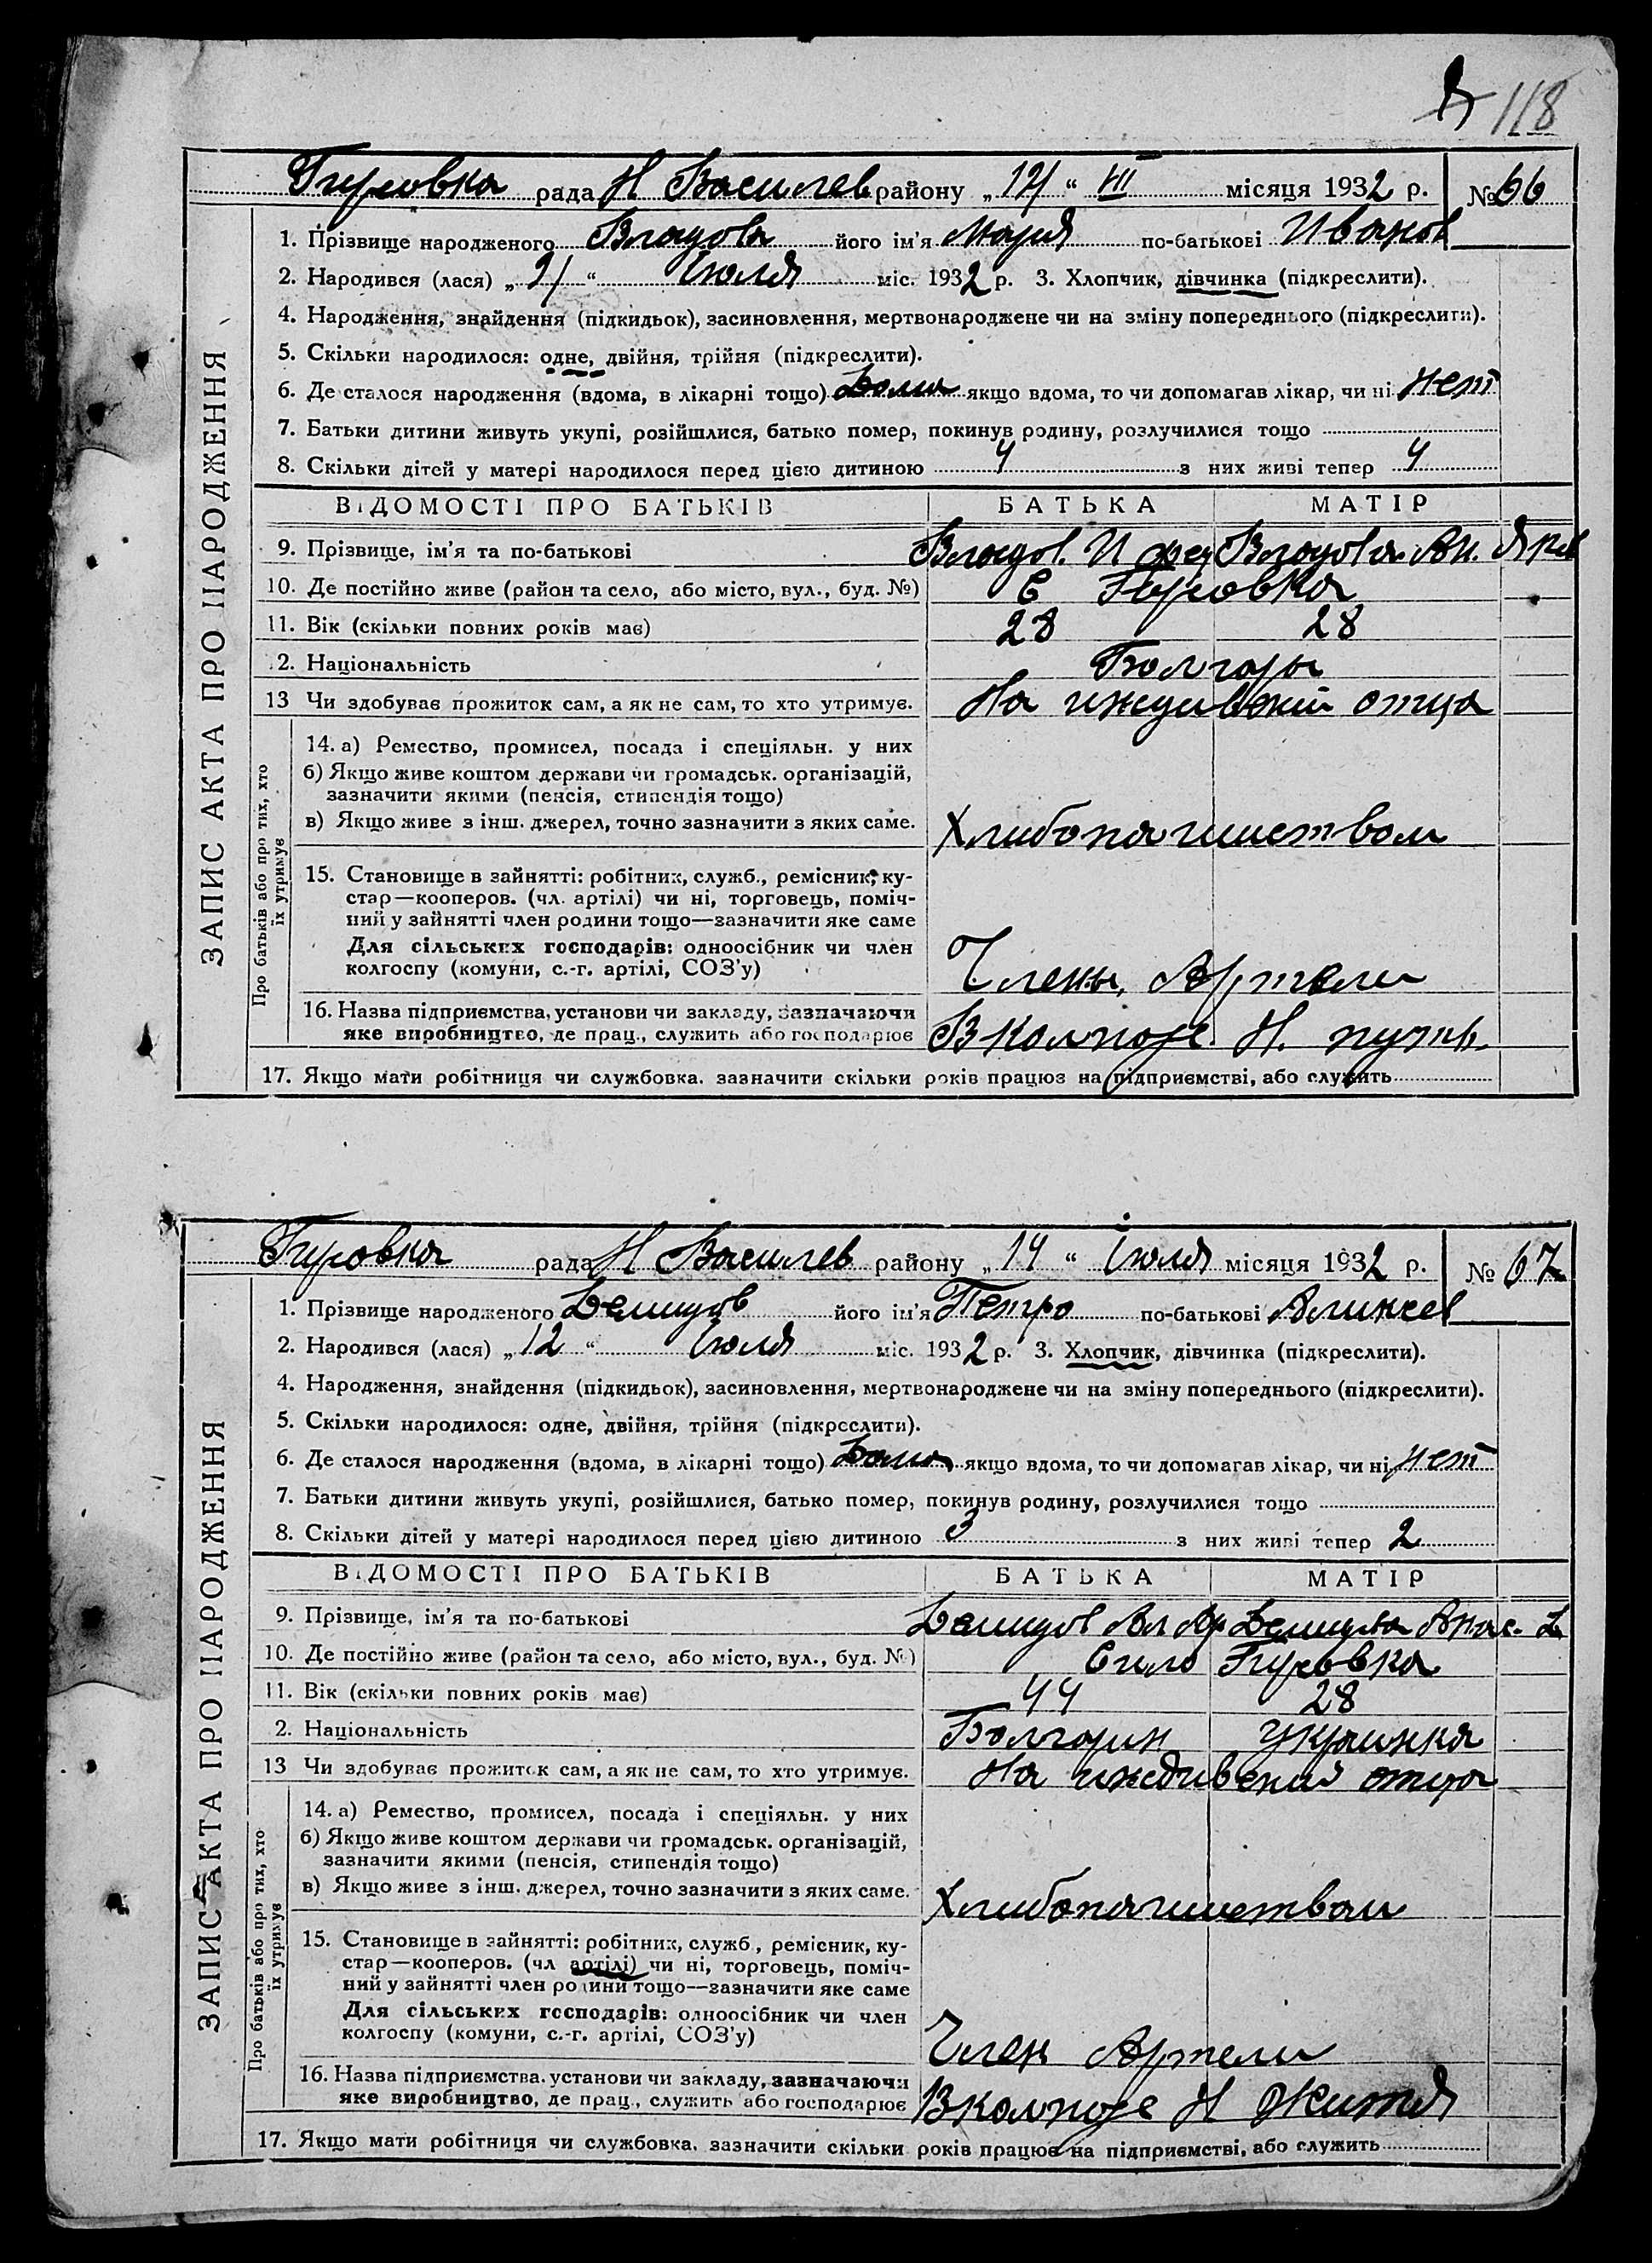 118
Гировка рада Н Василев району „12/“ VII місяця 1932 р. № 66
1. Прізвище народженого Владова його ім'я Мария по-батькові Иванов
2. Народився (лася) „9/“ Июля міс. 1932 р. 3. Хлопчик, дівчинка (підкреслити).
4. Народження, знайдення (підкидьок), засиновлення, мертвонароджене чи на зміну попереднього (підкреслити).
5. Скільки народилося: одне, двійня, трійня (підкреслити).
6. Де сталося народження (вдома, в лікарні тощо) Дома якщо вдома, то чи допомагав лікар, чи ні нет
7. Батьки дитини живуть укупі, розійшлися, батько помер, покинув родину, розлучилися тощо
8. Скільки дітей у матері народилося перед цією дитиною 4 з них живі тепер 4
ВІДОМОСТІ ПРО БАТЬКІВ БАТЬКА МАТІР
9. Прізвище, ім'я та по-батькові Владов. И Фед Владова Ан. Яков
10. Де постійно живе (район та село, або місто, вул., буд. №) С Гировка
11. Вік (скільки повних років має) 28 28
2. Національність Болгары
13 Чи здобуває прожиток сам, а як не сам, то хто утримує. На иждивении отца
14. а) Ремество, промисел, посада і спеціяльн. у них
б) Якщо живе коштом держави чи громадськ. організацій,
зазначити якими (пенсія, стипендія тощо)
в) Якщо живе з інш. джерел, точно зазначити з яких саме. Хлибопашиством
15. Становище в зайнятті: робітник, служб., ремісник, ку-
стар—кооперов. (чл. артілі) чи ні, торговець, поміч-
ний у зайнятті член родини тощо—зазначити яке саме
Для сільських господарів: одноосібник чи член
колгоспу (комуни, с.-г. артілі, СОЗ'у) Члены Артели
16. Назва підприємства, установи чи закладу, зазначаючи
яке виробництво, де прац., служить або господарює В колхозе Н. путь
17. Якщо мати робітниця чи службовка. зазначити скільки років працює на підприємстві, або служить
ЗАПИС АКТА ПРО НАРОДЖЕННЯ
Про батьків або про тих, хто
їх утримує
Гировка рада Н Василев району „14“ Июля місяця 1932 р. № 67
1. Прізвище народженого Демидов його ім'я Петро по-батькові
2. Народився (лася) „12“ Июля міс. 1932 р. 3. Хлопчик, дівчинка (підкреслити).
4. Народження, знайдення (підкидьок), засиновлення, мертвонароджене чи на зміну попереднього (підкреслити).
5. Скільки народилося: одне, двійня, трійня (підкреслити).
6. Де сталося народження (вдома, в лікарні тощо) Дома якщо вдома, то чи допомагав лікар, чи ні нет
7. Батьки дитини живуть укупі, розійшлися, батько помер, покинув родину, розлучилися тощо
8. Скільки дітей у матері народилося перед цією дитиною 3 з них живі тепер 2
ВІДОМОСТІ ПРО БАТЬКІВ БАТЬКА МАТІР
9. Прізвище, ім'я та по-батькові Демидов Ал Демидова Анас.
10. Де постійно живе (район та село, або місто, вул., буд. №) Сило Гировка
11. Вік (скільки повних років має) 44 28
2. Національність Болгарин Украинка
13 Чи здобуває прожиток сам, а як не сам, то хто утримує. На иждивении отца
14. а) Ремество, промисел, посада і спеціяльн. у них
б) Якщо живе коштом держави чи громадськ. організацій,
зазначити якими (пенсія, стипендія тощо)
в) Якщо живе з інш. джерел, точно зазначити з яких саме. Хлибопашиством
15. Становище в зайнятті: робітник, служб., ремісник, ку-
стар—кооперов. (чл артілі) чи ні, торговець, поміч-
ний у зайнятті член родини тощо—зазначити яке саме
Для сільських господарів: одноосібник чи член
колгоспу (комуни, с.-г. артілі, СОЗ'у) Член Артели
16. Назва підприємства. установи чи закладу, зазначаючи
яке виробництво, де прац., служить або господарює В колхозе Н Життя
17. Якщо мати робітниця чи службовка. зазначити скільки років працює на підприємстві, або служить
ЗАПИС АКТА ПРО НАРОДЖЕННЯ
Про батьків або про тих, хто
їх утримує